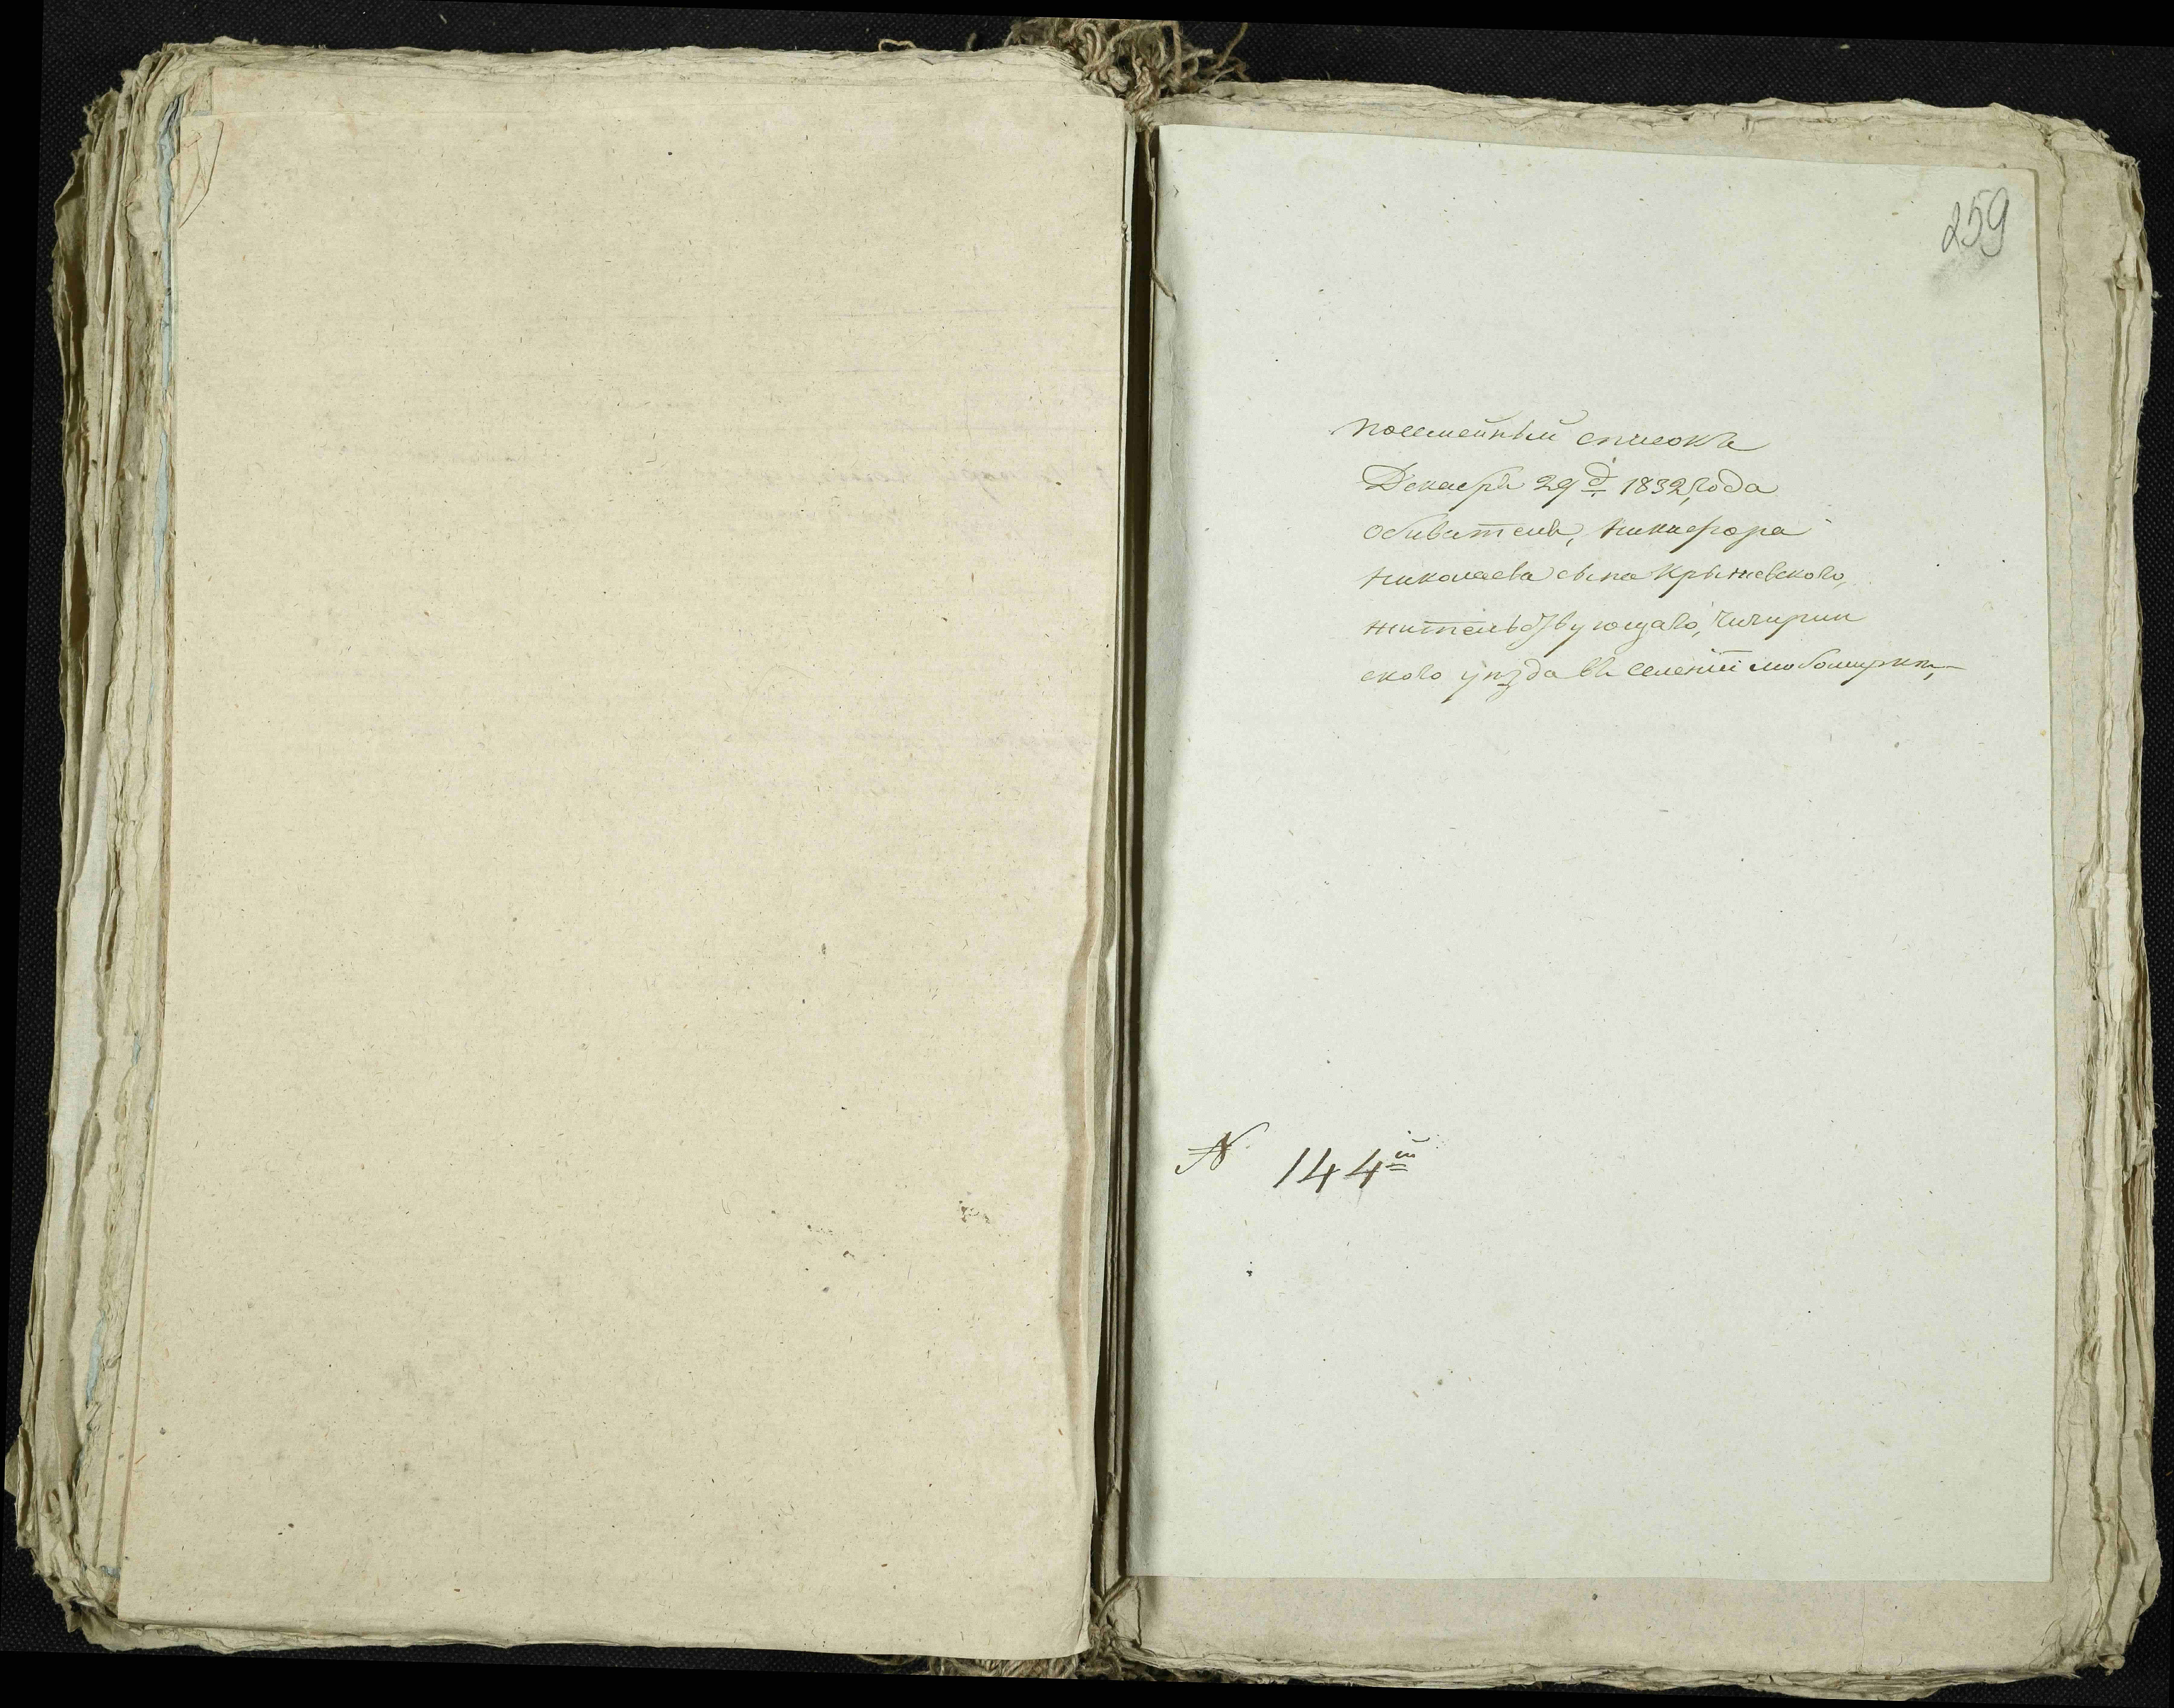 259
посемейный списокъ
Декабря 29 д 1832, года
обывателя, никифора
николаева сына Крыжевского,
жительствующаго, чигирин
ского уезда въ селении любомирки,
N 144й